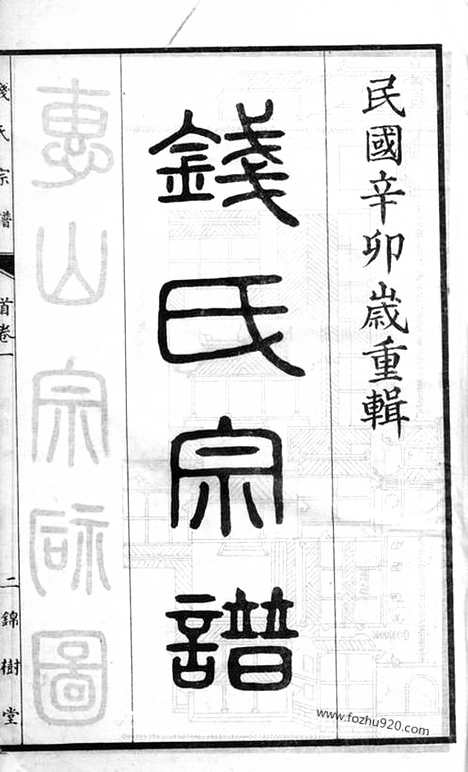 民國辛卯歲重輯
錢氏宗譜
惠山宗祠圖
錢氏宗譜
首卷一
二
錦樹堂
www.fozhu920.com